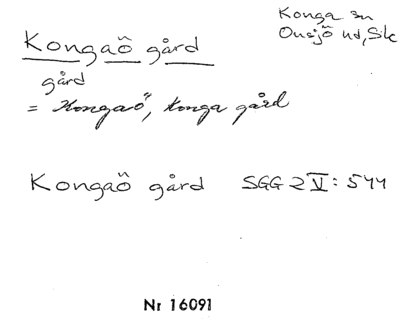 Konga sn
Onsjö hd, Sk
Kongaö gård
gård
= Kongaö, Konga gård
Kongaö gård SGG 2 V: 544
Nr 16091